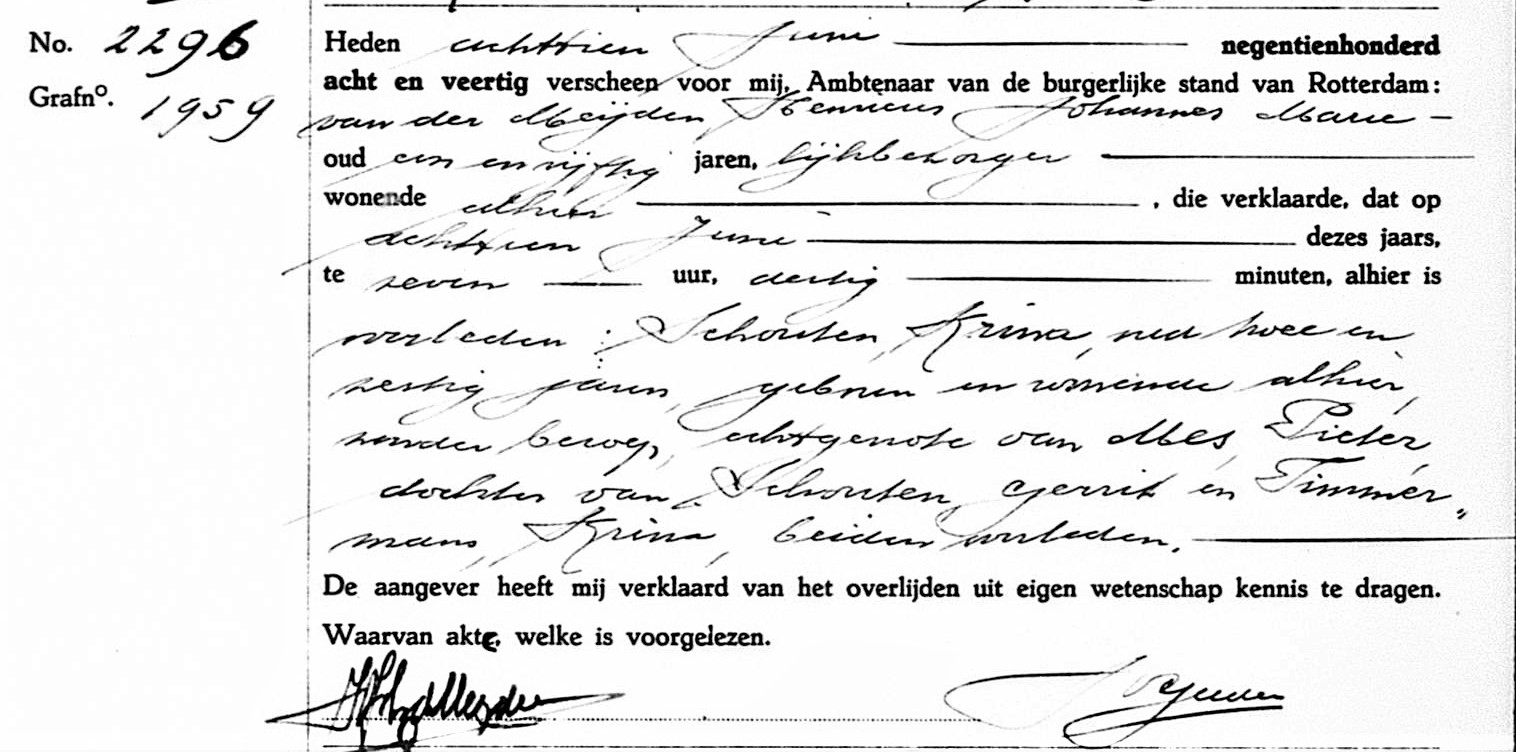 No. 2296
Grafno. 1959
Heden achttien Juni negentienhonderd
acht en veertig verscheen voor mij, Ambtenaar van de burgerlijke stand van Rotterdam:
van der Meijden, Henricus Johannes Marie
oud een en vijftig jaren, lijkbezorger
wonende alhier , die verklaarde, dat op
achttien Juni dezes jaars,
te zeven uur, dertig minuten, alhier is
overleden: Schouten, Krina, oud twee en
zestig jaren, geboren en wonende alhier,
zonder beroep, echtgenote van Mes, Pieter,
dochter van Schouten, Gerrit en Timmer„
mans, Krina, beiden overleden.
De aangever heeft mij verklaard van het overlijden uit eigen wetenschap kennis te dragen.
Waarvan akte, welke is voorgelezen.